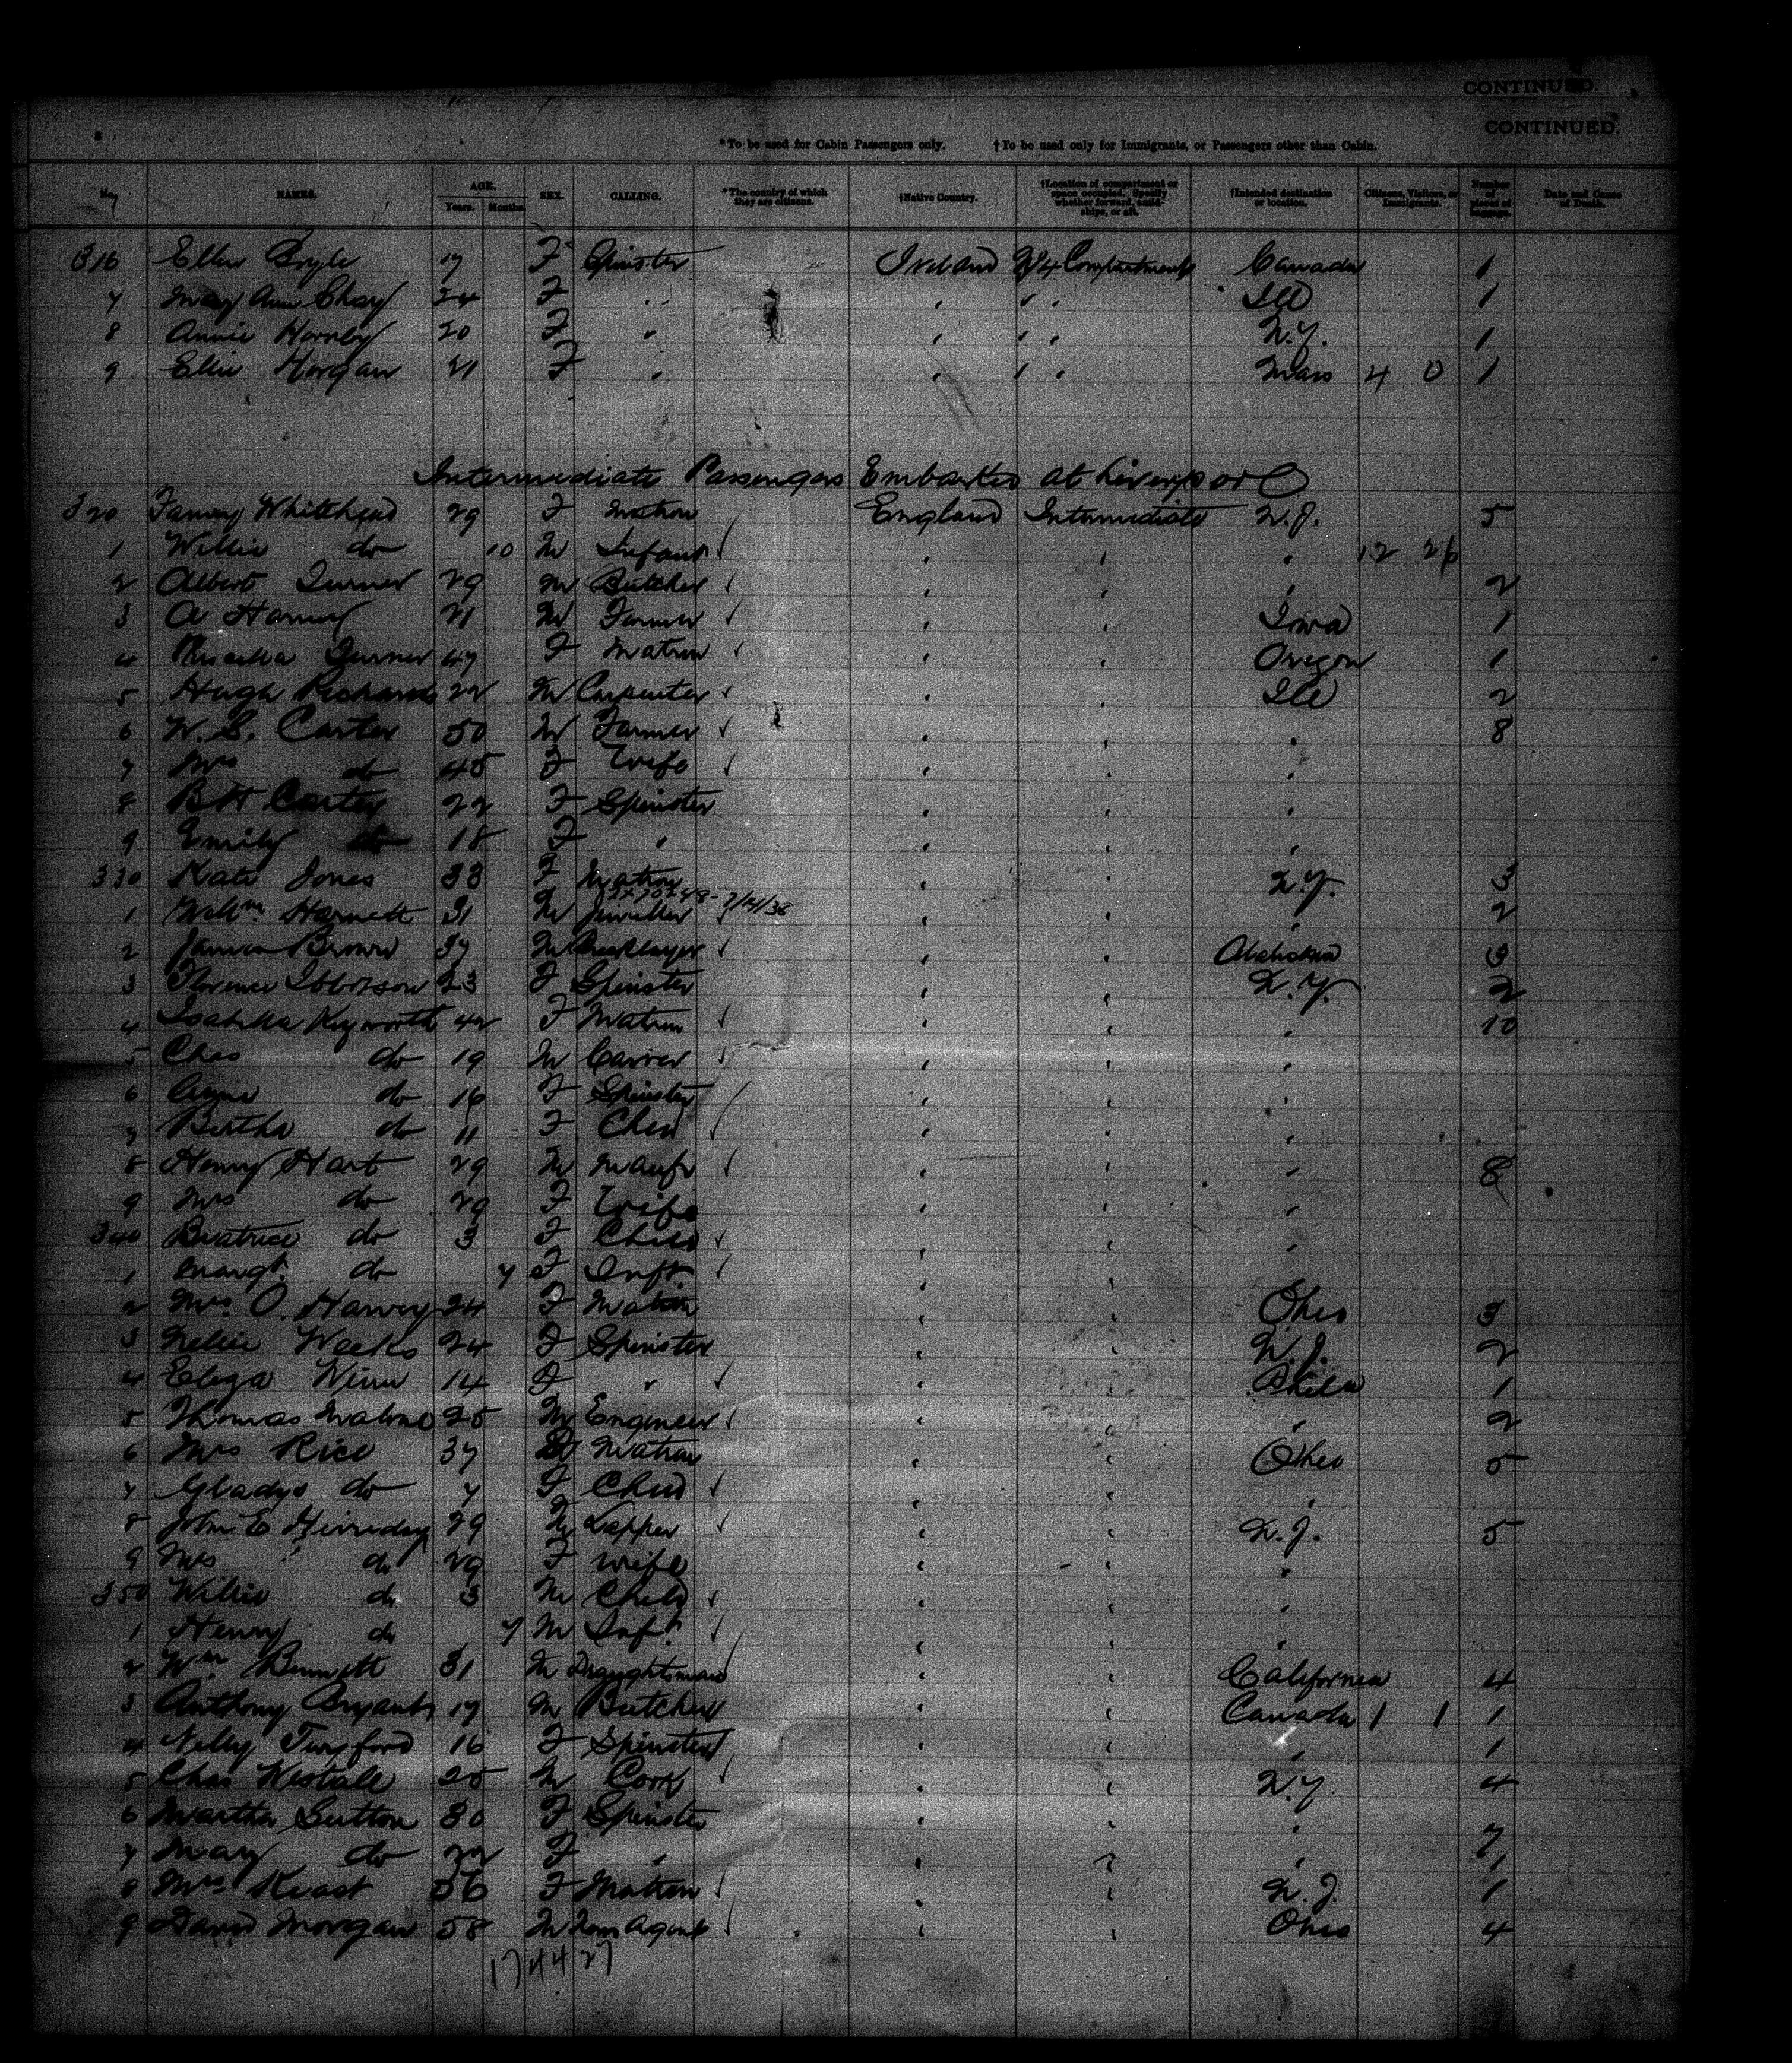 CONTINUED.
CONTINUED.
*To be used for Cabin Passengers only. †To be used only for Immigrants, or Passengers other than Cabin.
No. NAMES. AGE. Years. Months. SEX. CALLING. *The country of which they are citizens. †Native Country. †Location of compartment or space occupied. Specify whether forward, amidships, or aft. †Intended destination or location. Citizens, Visitors, or Immigrants. Number of pieces of baggage. Date and Cause of Death.
316 Ellen Boyle 17 F Spinster Ireland No 4 Compartment Canada 1
7 Mary Ann 24 F " " " " Ill 1
8 Annie Hornby 20 F " " " " N.Y. 1
9 Ellie Horgan 21 F " " " " Mass 4 0 1
Intermediate Passengers Embarked at Liverpool
320 Fanny Whitehead 29 F Matron England Intermediate N.J. 5
1 Willie do 10 M Infant " " " 12 26
2 Albert Turner 29 M Butcher " " " 2
3 A 21 M Farmer " " Iowa 1
4 Turner 47 F Matron " " Oregon 1
5 Hugh Richards 22 M Carpenter " " Ill 2
6 W. S. Carter 50 M Farmer " " " 8
7 Mrs do 45 F Wife " " "
8 BH Carter 22 F Spinster " " "
9 Emily do 18 F " " " "
330 Kate Jones 33 F Matron " " N.Y. 3
1 Willm Harnett 31 M Jeweller " " " 2
2 James Brown 37 M Bricklayer " " 3
3 Florence Ibbotson 23 F Spinster " " N.Y. 2
4 Isabella Keyworth 42 F Matron " " " 10
5 Chas do 19 M Carver " " "
6 do 16 F Spinster " " "
7 Bertha do 11 F Child " " "
8 Henry Hart 29 M Manfr " " " 8
9 Mrs do 29 F Wife " " "
340 Beatrice do 3 F Child " " "
1 Margt. do 7 F Inft. " " "
2 Mrs O. Harvey 24 F Matron " " Ohio 3
3 Nellie Weeks 24 F Spinster " " N.J. 2
4 Eliza Winn 14 F " " " Phila 1
5 Thomas Malone 25 M Engineer " " " 2
6 Mrs Rice 37 Matron " " Ohio 5
7 Gladys do 7 F Child " " "
8 John E 29 M Lapper " " N.J. 5
9 Mrs do 29 F Wife " " "
350 Willie do 3 M Child " " "
1 Henry do 7 M Inft. " " "
2 Wm Bennett 31 M Draughtsman " " California 4
3 Anthony Bryant 17 M Butcher " " Canada 1 1 1
4 Nelly Twyford 16 F Spinster " " " 1
5 Chas Westale 25 M Cook " " N.Y. 4
6 Martha Sutton 30 F Spinster " " " 7
7 Mary do 22 F " " " " 1
8 Mrs Keast 56 F Matron " " N.J. 1
9 David Morgan 58 M Agent " " Ohio 4
17 44 27